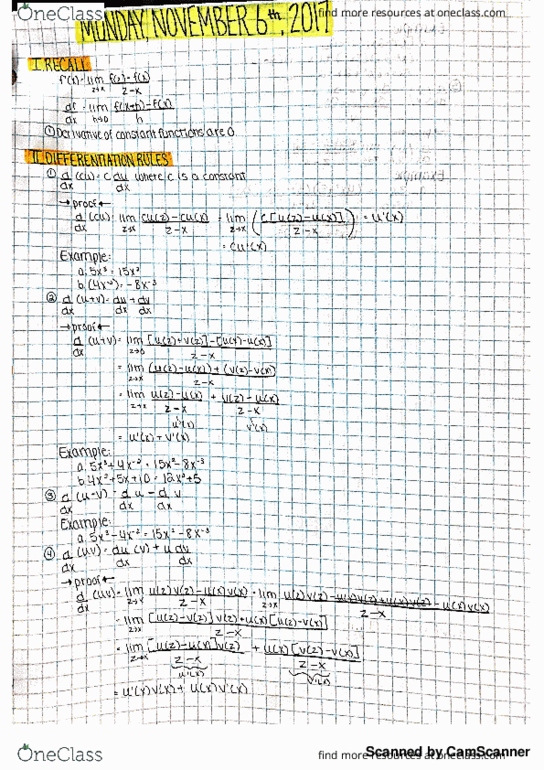 OneClass find more resources at oneclass.com
MUNDAY, NOVEMBER 6th, 2017
I. RECALL
f'(x) = lim z→x f(z)-f(x) / z-x
df/dx = lim h→0 f(x+h)-f(x) / h
① Derivative of constant functions are 0.
II. DIFFERENTIATION RULES
① d/dx (cu) = c du/dx where c is a constant
→proof←
d/dx (cu) = lim z→x cu(z)-cu(x) / z-x = lim z→x (c[u(z)-u(x)] / z-x) = u'(x)
= cu'(x)
Example:
a. 5x³ = 15x²
b. (4x⁻²) = -8x⁻³
② d/dx (u+v) = du/dx + dv/dx
→proof←
d/dx (u+v) = lim z→0 [u(z)+v(z)]-[u(x)-u(x)] / z-x
= lim z→x (u(z)-u(x)) + (v(z)-v(x)) / z-x
= lim z→x u(z)-u(x) / z-x + v(z)-u(x) / z-x
u'(x) v'(x)
= u'(x) + v'(x)
Example:
a. 5x³+4x⁻² = 15x²-8x⁻³
b. 4x³+5x+10 = 12x²+5
③ d/dx (u-v) = d/dx u - d/dx v
Example:
a. 5x³-4x⁻² = 15x²-8x⁻³
④ d/dx (uv) = du/dx (v) + u dv/dx
→proof←
d/dx (uv) = lim z→x u(z)v(z)-u(x)v(x) / z-x = lim z→x u(z)v(z) - u(x)v(z)+u(x)v(z) - u(x)v(x) / z-x
= lim z→x [u(z)-v(z)] v(z)+u(x)[u(z)-v(x)] / z-x
= lim z→x [u(z)-u(x)]v(z) / z-x + u(x)[v(z)-v(x)] / z-x
u'(x) v'(x)
= u'(x)v(x) + u(x)v'(x)
Scanned by CamScanner
OneClass find more resources at oneclass.com